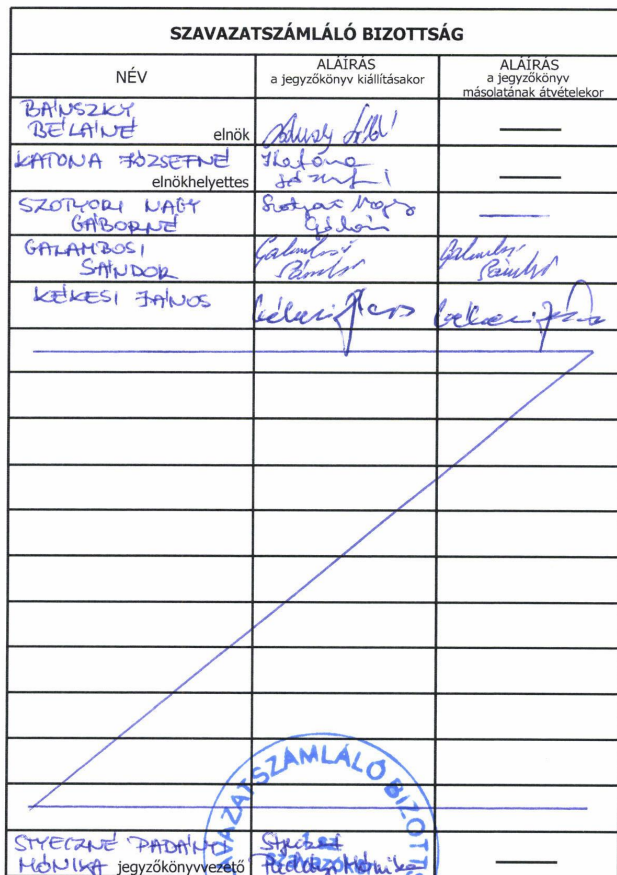 SZAVAZATSZÁMLÁLÓ BIZOTTSÁG
NÉV
ALÁÍRÁS
a jegyzőkönyv kiállításakor
ALÁÍRÁS
a jegyzőkönyv
másolatának átvételekor
BÁNSZKY
BÉLÁNÉ elnök
KATONA JÓZSEFNÉ
elnökhelyettes
Katona
SZOTYORI NAGY
GÁBORNÉ
Nagy
GALAMBOSI
SÁNDOR
Galambosi
Sándor
Galambosi
Sándor
KÉKESI JÁNOS
Kékesi János
Kékesi János
STYECZNÉ
MÓNIKA jegyzőkönyvvezető
Mónika
SZAVAZATSZÁMLÁLÓ BIZOTTS
1.sz.
szavazókör